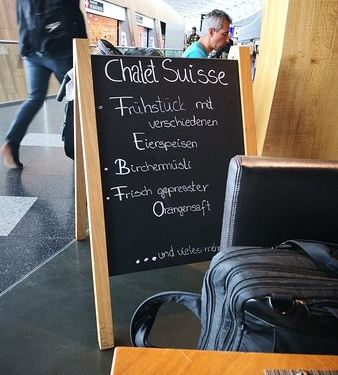 Chalet Suisse
Frühstück mit
verschiedenen
Eierspeisen
Birchermüsli
Frisch gepresster
Orangensaft
...und vieles